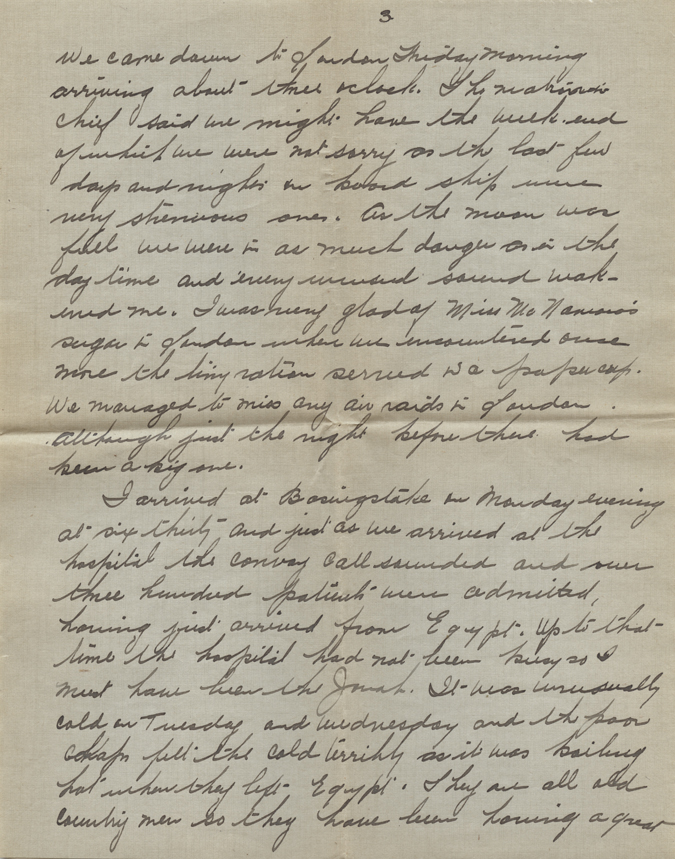 3
We came down to London Friday morning
arriving about three oclock. The matron in
chief said we might have the week-end
of which we were not sorry as the last few
days and nights on board ship were
very strenuous ones. As the moon was
full we were in as much danger as in the
day time and every unusual sound wak-
ened me. I was very glad of Miss McNamara's
sugar in London where we encountered once
more the tiny ration served in a paper cup.
We managed to miss any air raids in London.
Although just the night before there had
been a big one.
I arrived at Basingstoke on Monday evening
at six thirty and just as we arrived at the
hospital the convoy call sounded and over
three hundred patients were admitted,
having just arrived from Egypt. Up to that
time the hospital had not been busy so I
must have been the Jonah. It was unusually
cold on Tuesday and Wednesday and the poor
chaps felt the cold terribly as it was boiling
hot when they left Egypt. They are all old
country men so they have been having a great